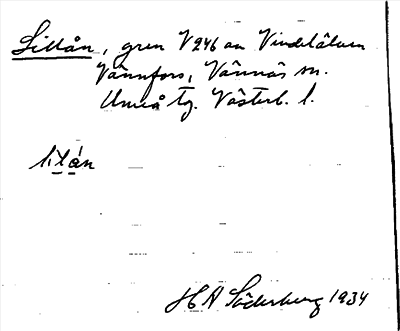 Lillån, gren V 246 av Vindelälven
Vännfors, Vännäs sn.
Umeå tg. Västerb. l.
lilån
H A Söderberg 1934